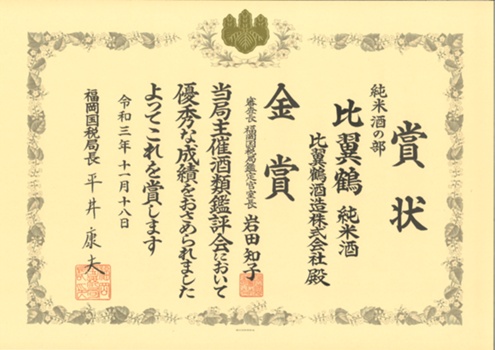 賞状
純米酒の部
比翼鶴 純米酒
比翼鶴酒造株式会社殿
金賞
審査長 福岡国税局鑑定官室長 岩田知子
当局主催酒類鑑評会において
優秀な成績をおさめられました
よってこれを賞します
令和三年十一月十八日
福岡国税局長 平井康夫